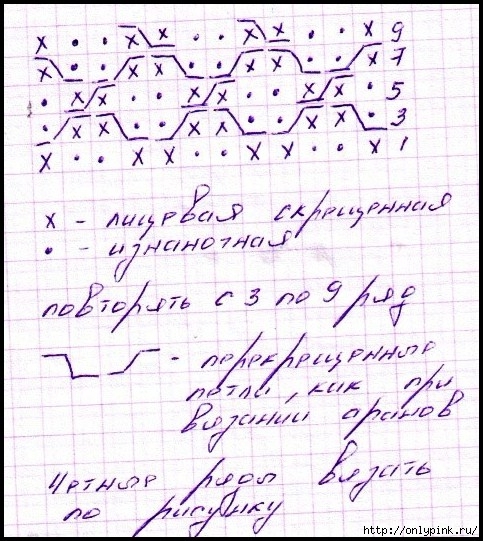 x • • x x • • x x • • x 9
x • • x x • • x x • • x 7
• x x • • x x • • x x • 5
• x x • • x x • • x x • 3
x • • x x • • x x • • x 1
x - лицевая скрещенная
• - изнаночная
повторять с 3 по 9 ряд
- перекрещенные
петли, как при
вязании аранов
Четные ряды вязать
по рисунку
http://onlypink.ru/